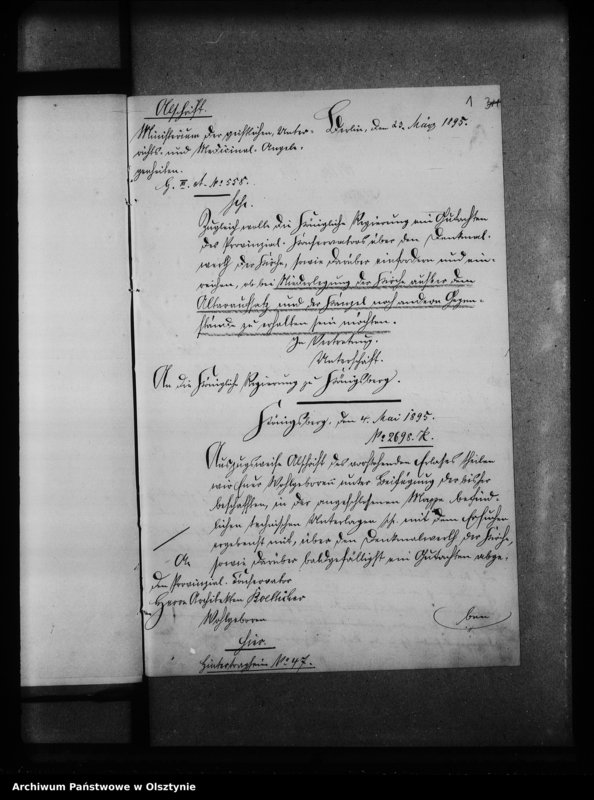 Abschrift.
1
Ministerium der geistlichen, Unter- Berlin, den 23. März 1895.
richts- und Medicinal-Angele-
genheiten.
G. III. A. No 558.
Zugleich wolle die Königliche Regierung ein Gutachten
des Provinzial-Konservators über den Denkmal-
werth der Kirche, sowie darüber einfordern und ein-
reichen, ob bei Niederlegung der Kirche außer dem
Altaraufsatz und der Kanzel noch andere Gegen-
stände zu erhalten sein möchten.
In Vertretung.
Unterschrift.
An die Königliche Regierung zu Königsberg.
Königsberg, den 4. Mai 1895.
No 2698. K.
Auszugsweise Abschrift des vorstehenden Erlasses theilen
wir Euer Wohlgeboren unter Beifügung der bisher
beschafften, in der angeschlossenen Mappe befind-
lichen technischen Unterlagen mit dem Ersuchen
ergebenst mit, über den Denkmalwerth der Kirche,
sowie darüber baldgefälligst ein Gutachten abge-
ben
An
den Provinzial-Konservator
Herrn Architekten
Wohlgeboren
Hier.
Hintertragheim No 47.
Archiwum Państwowe w Olsztynie